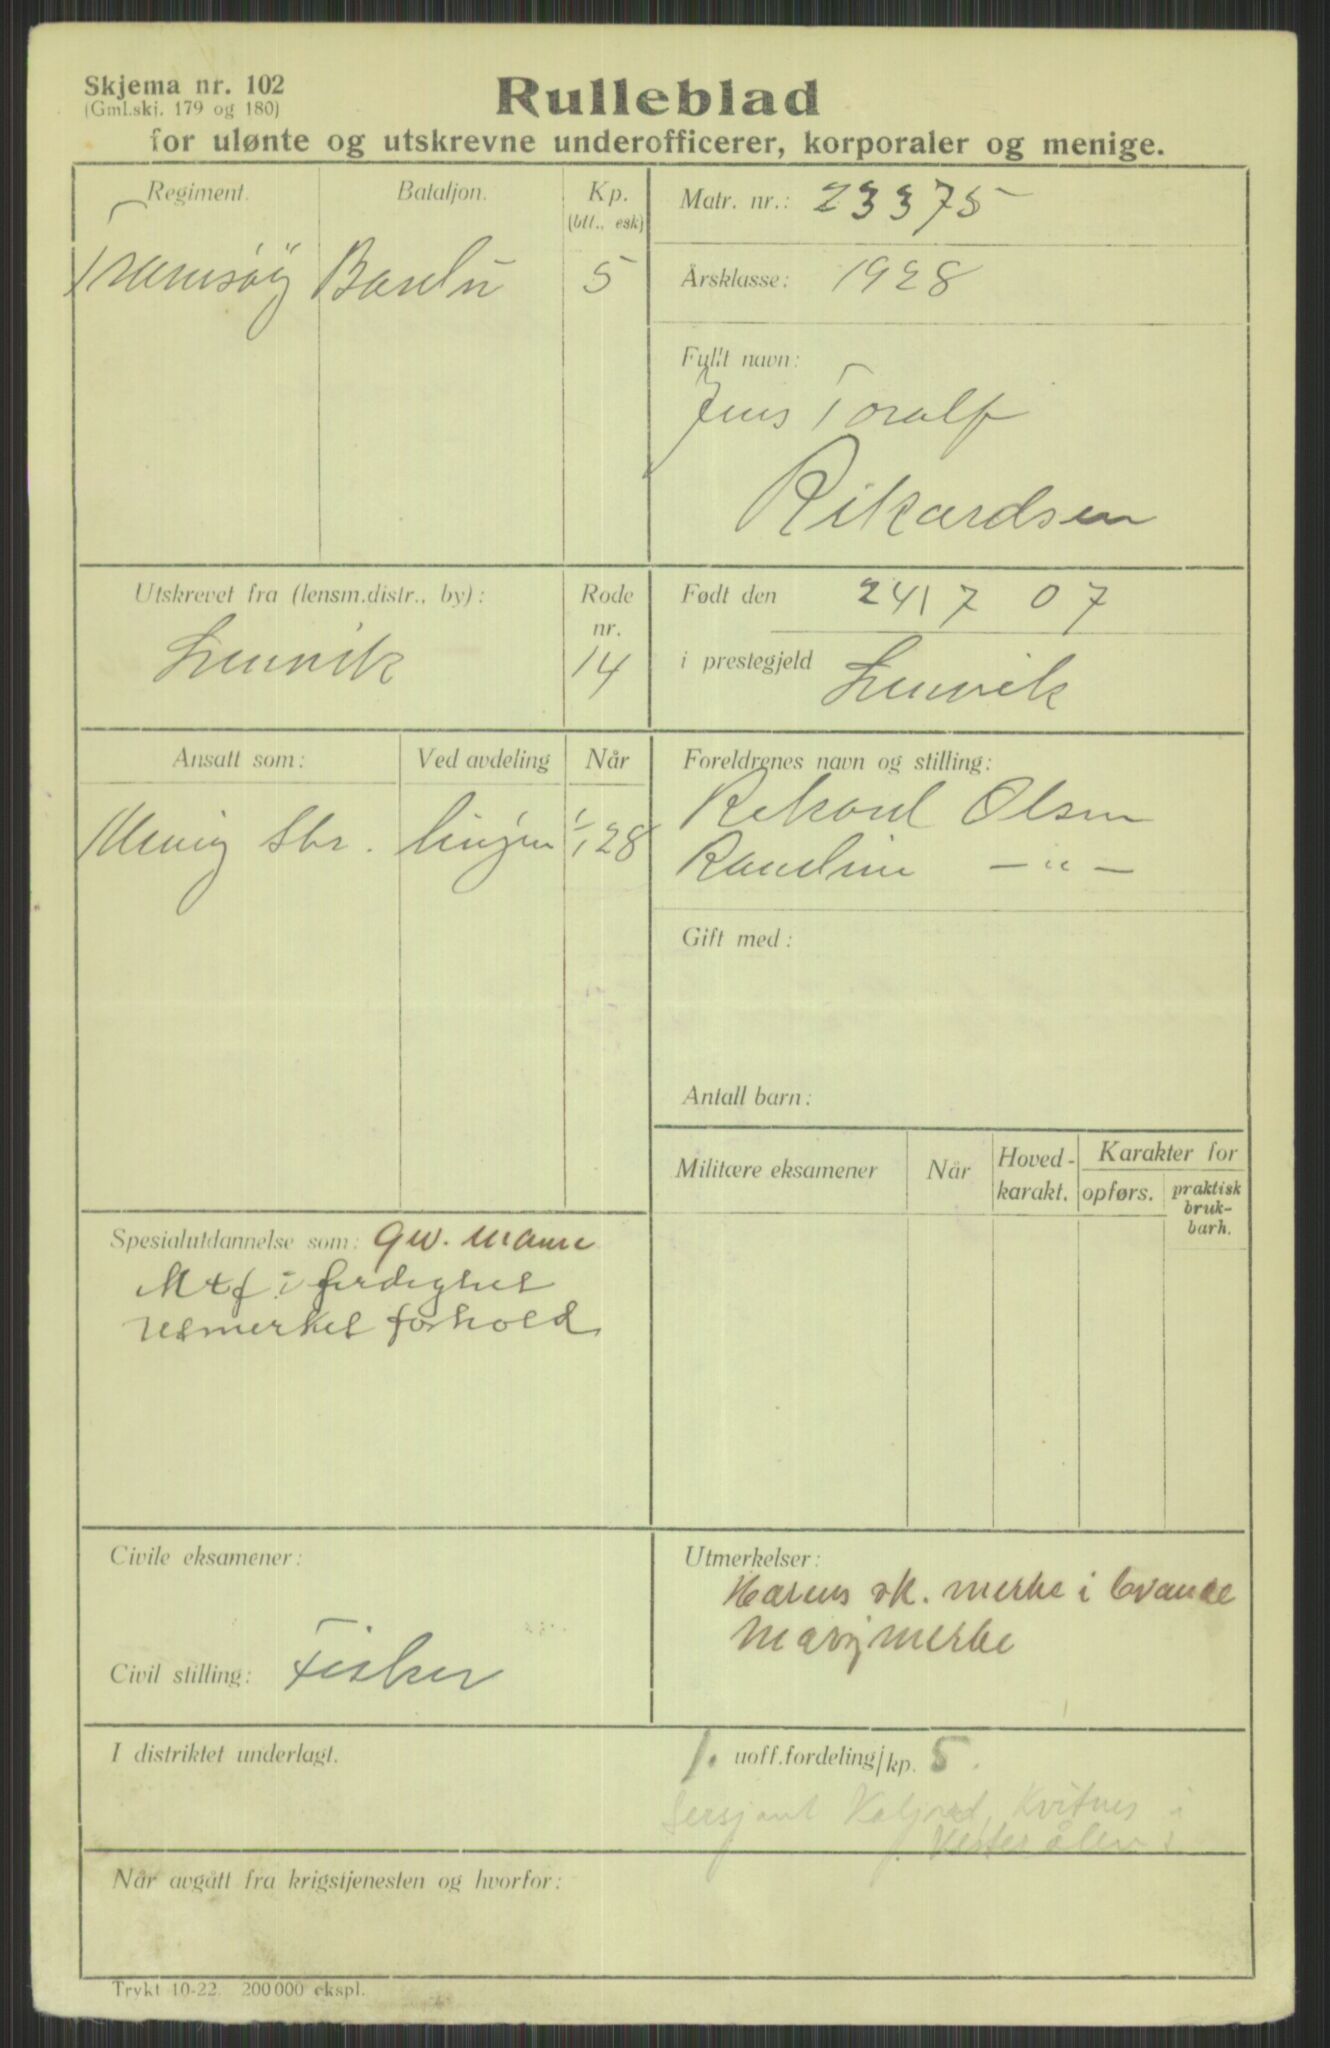 Skjema nr. 102
(Gml.skj. 179 og 180)
Rulleblad
for ulønte og utskrevne underofficerer, korporaler og menige.
Regiment.
Bataljon.
Kp.
(btt., esk)
Tromsøy
Bardu
5
Matr. nr.: 23375
Årsklasse: 1928
Fullt navn:
Jens Toralf
Rikardsen
Utskrevet fra (lensm.distr., by):
Lenvik
Rode
nr.
14
Født den 24/7 07
i prestegjeld Lenvik
Ansatt som:
Ved avdeling
Når
Menig Str. linjen 1/1 28
Foreldrenes navn og stilling:
Rikard Olsen
— " —
Gift med:
Antall barn:
Militære eksamener
Når
Hoved-
karakt.
Karakter for
opførs.
praktisk
bruk-
barh.
Spesialutdannelse som: Gw. mann
Mtf i ferdighet
utmerket forhold
Civile eksamener:
Civil stilling: Fisker
Utmerkelser:
Hærens sk. merke i bronse
Marsjmerke
I distriktet underlagt.
1. uoff.fordeling/kp. 5.
Sersjant Kvitnes i
Vesterålen
Når avgått fra krigstjenesten og hvorfor:
Trykt 10-22. 200 000 ekspl.